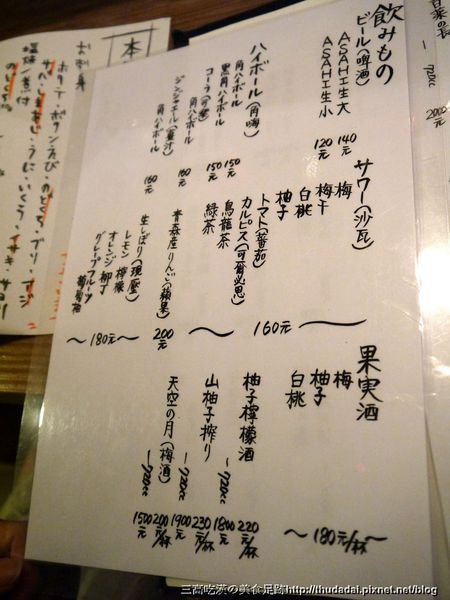 飲みもの
ビール(啤酒)
ASAHI生大 140元
ASAHI生小 120元
ハイボール(角嗨)
角ハイボール 150元
黒角ハイボール 150元
コーラ(可樂)
角ハイボール 160元
ジンジャエール(薑汁)
角ハイボール 160元
サワー(沙瓦)
梅
梅干
白桃
柚子
トマト(蕃茄)
カルピス(可爾必思)
烏龍茶
緑茶
〜 160元 〜
青森産りんご(蘋果) 200元
生しぼり(現壓)
レモン 檸檬
オレンジ 柳丁
グレープフルーツ 葡萄柚
〜180元〜
果実酒
梅
柚子
白桃
〜180元/杯〜
柚子檸檬酒 220元/杯
一720cc 1800元
山柚子搾り 230元/杯
一720cc 1900元
天空の月(梅酒) 200元/杯
一720cc 1500元
本
お刺身
塩焼・煮付
一 720cc 2000元
三高吃漢の美食足跡http://thudadai.pixnet.net/blog